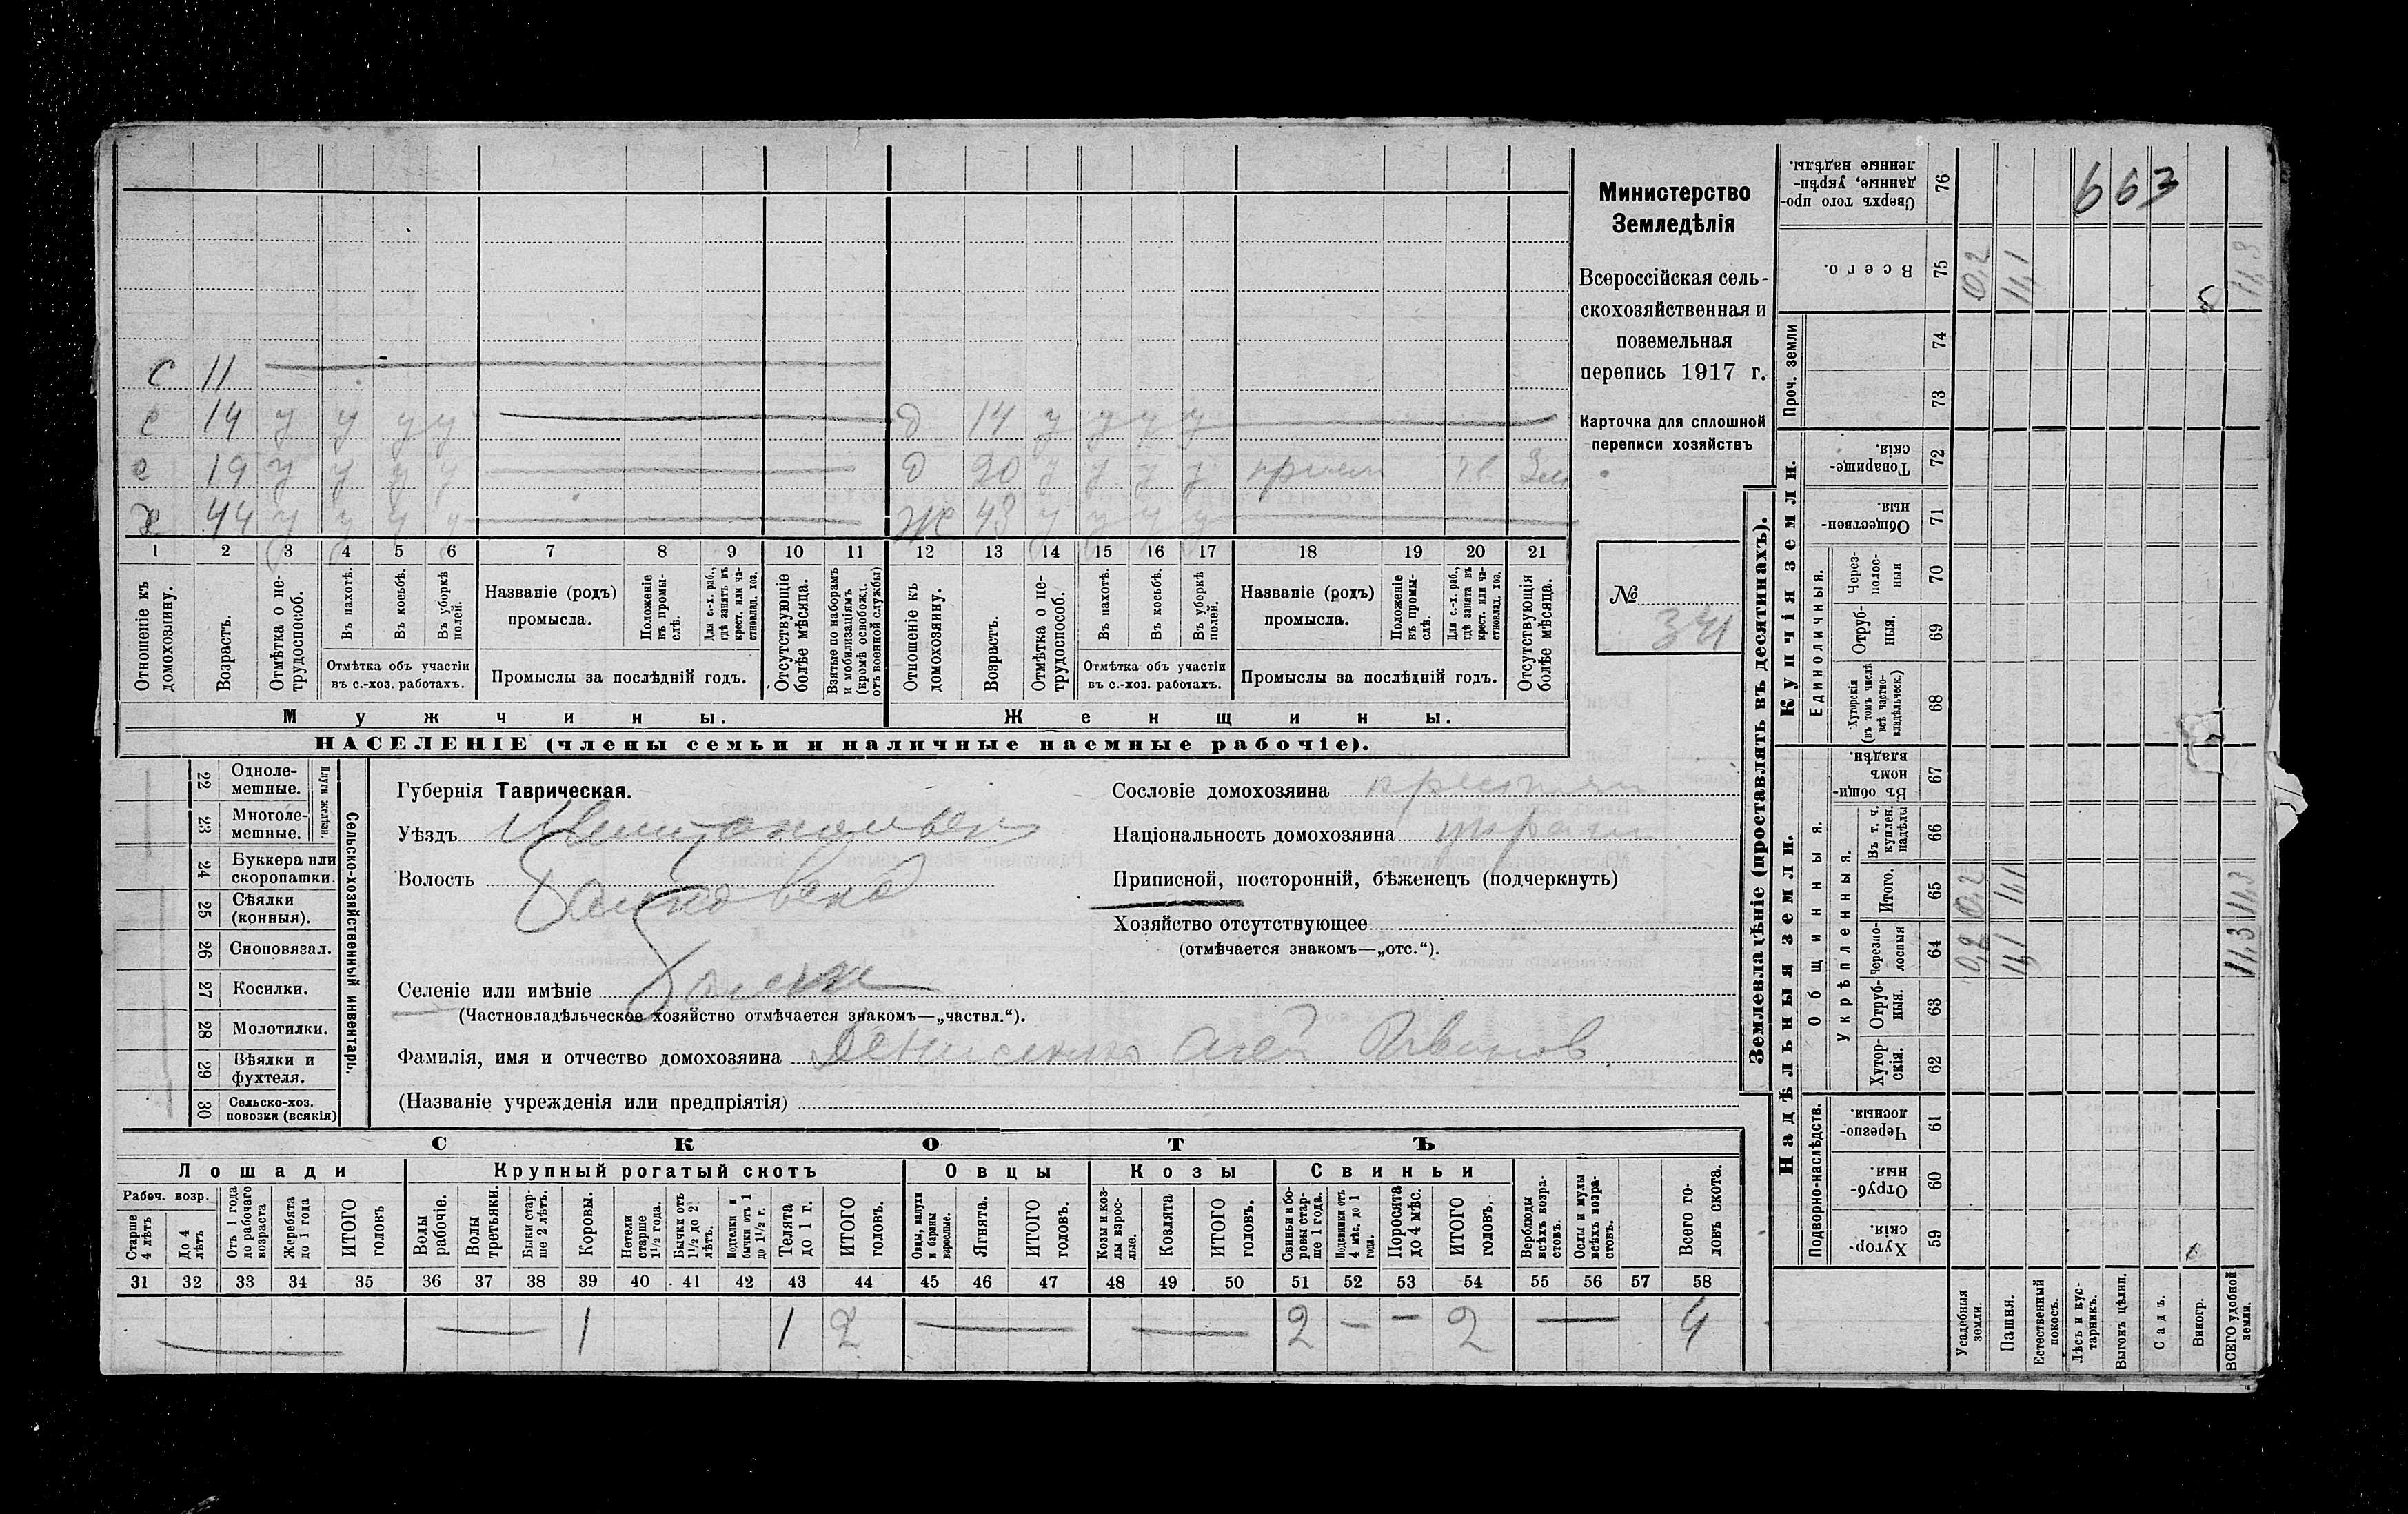 Министерство
Земледѣлія
Всероссійская сель-
скохозяйственная и
поземельная
перепись 1917 г.
Карточка для сплошной
переписи хозяйствъ
№
341
С 11
с 14 у у у у д 14 у у у у
с 19 у у у у д 20 у у у у
Х 44 у у у у Ж 43 у у у у
1 2 3 4 5 6 7 8 9 10 11 12 13 14 15 16 17 18 19 20 21
Отношеніе къ домохозяину.
Возрастъ.
Отмѣтка о не-трудоспособ.
Въ пахотѣ.
Въ косьбѣ.
Въ уборкѣ полей.
Отмѣтка объ участіи
въ с.-хоз. работахъ.
Названіе (родъ)
промысла.
Положеніе въ промы-слѣ.
Для с.-х. раб., гдѣ занятъ въ крест. или ча-стновлад. хоз.
Промыслы за послѣдній годъ.
Отсутствующіе болѣе мѣсяца.
Взятые по наборамъ и мобилизаціямъ (кромѣ освобожд. отъ военной службы)
Отношеніе къ домохозяину.
Возрастъ.
Отмѣтка о не-трудоспособ.
Въ пахотѣ.
Въ косьбѣ.
Въ уборкѣ полей.
Отмѣтка объ участіи
въ с.-хоз. работахъ.
Названіе (родъ)
промысла.
Положеніе въ промы-слѣ.
Для с.-х. раб., гдѣ занята въ крест. или ча-стновлад. хоз.
Промыслы за послѣдній годъ.
Отсутствующія болѣе мѣсяца.
Мужчины. Женщины.
НАСЕЛЕНІЕ (члены семьи и наличные наемные рабочіе).
Сельско-хозяйственный инвентарь.
Плуги желѣзн.
22 Одноле-мешные.
23 Многоле-мешные.
24 Буккера или скоропашки.
25 Сѣялки (конныя).
26 Сноповязал.
27 Косилки.
28 Молотилки.
29 Вѣялки и фухтеля.
30 Сельско-хоз. повозки (всякія)
Губернія Таврическая.
Уѣздъ
Волость
Селеніе или имѣніе
(Частновладѣльческое хозяйство отмѣчается знакомъ—„частвл.“).
Фамилія, имя и отчество домохозяина Денисенко Иванов
(Названіе учрежденія или предпріятія)
Сословіе домохозяина крестьян
Національность домохозяина украин
Приписной, посторонній, бѣженецъ (подчеркнуть)
Хозяйство отсутствующее
(отмѣчается знакомъ—„отс.“).
СКОТЪ
Лошади Крупный рогатый скотъ Овцы Козы Свиньи
Рабоч. возр.
Старше 4 лѣтъ
До 4 лѣтъ
Отъ 1 года до рабочаго возраста
Жеребята до 1 года
ИТОГО головъ
Волы рабочіе.
Волы третьяки.
Быки стар-ше 2 лѣтъ.
Коровы.
Нетели старше 1½ года.
Бычки отъ 1½ до 2 лѣтъ.
Подтелки и бычки отъ 1 до 1½ г.
Телята до 1 г.
ИТОГО головъ.
Овцы, валухи и бараны взрослые.
Ягнята.
ИТОГО головъ.
Козы и коз-лы взрос-лые.
Козлята
ИТОГО головъ.
Свиньи и бо-ровы стар-ше 1 года.
Подсвинки отъ 4 мѣс. до 1 года.
Поросята до 4 мѣс.
ИТОГО головъ.
Верблюды всѣхъ возра-стовъ.
Ослы и мулы всѣхъ возра-стовъ.
Всего го-ловъ скота.
31 32 33 34 35 36 37 38 39 40 41 42 43 44 45 46 47 48 49 50 51 52 53 54 55 56 57 58
— — 1 1 2 — — 2 — — 2 — 4
Землевладѣніе (проставлять въ десятинахъ).
Надѣльныя земли. Купчія земли. Проч. земли
Подворно-наслѣдств.
Общинныя.
Укрѣпленныя.
Единоличныя.
59 Хутор-скія.
60 Отруб-ныя.
61 Черезпо-лосныя.
62 Хутор-скія.
63 Отруб-ныя.
64 Черезпо-лосныя
65 Итого.
66 Въ т. ч. куплен. надѣлы
67 Въ общи-номъ владѣн.
68 Хуторскія (въ томъ числѣ всѣ частно-владѣльческ.)
69 Отруб-ныя.
70 Через-полос-ныя
71 Обществен-ныя.
72 Товарище-скія.
73
74
75 Всего.
76 Сверхъ того про-данные, укрѣп-ленные надѣлы.
Усадебныя земли. 0,2 0,2 0,2
Пашня. 11,1 11,1 11,1
Естественный покосъ.
Лѣсъ и кус-тарникъ.
Выгонъ цѣлин.
Садъ.
Виногр.
ВСЕГО удобной земли. 11,3 11,3 11,3
663